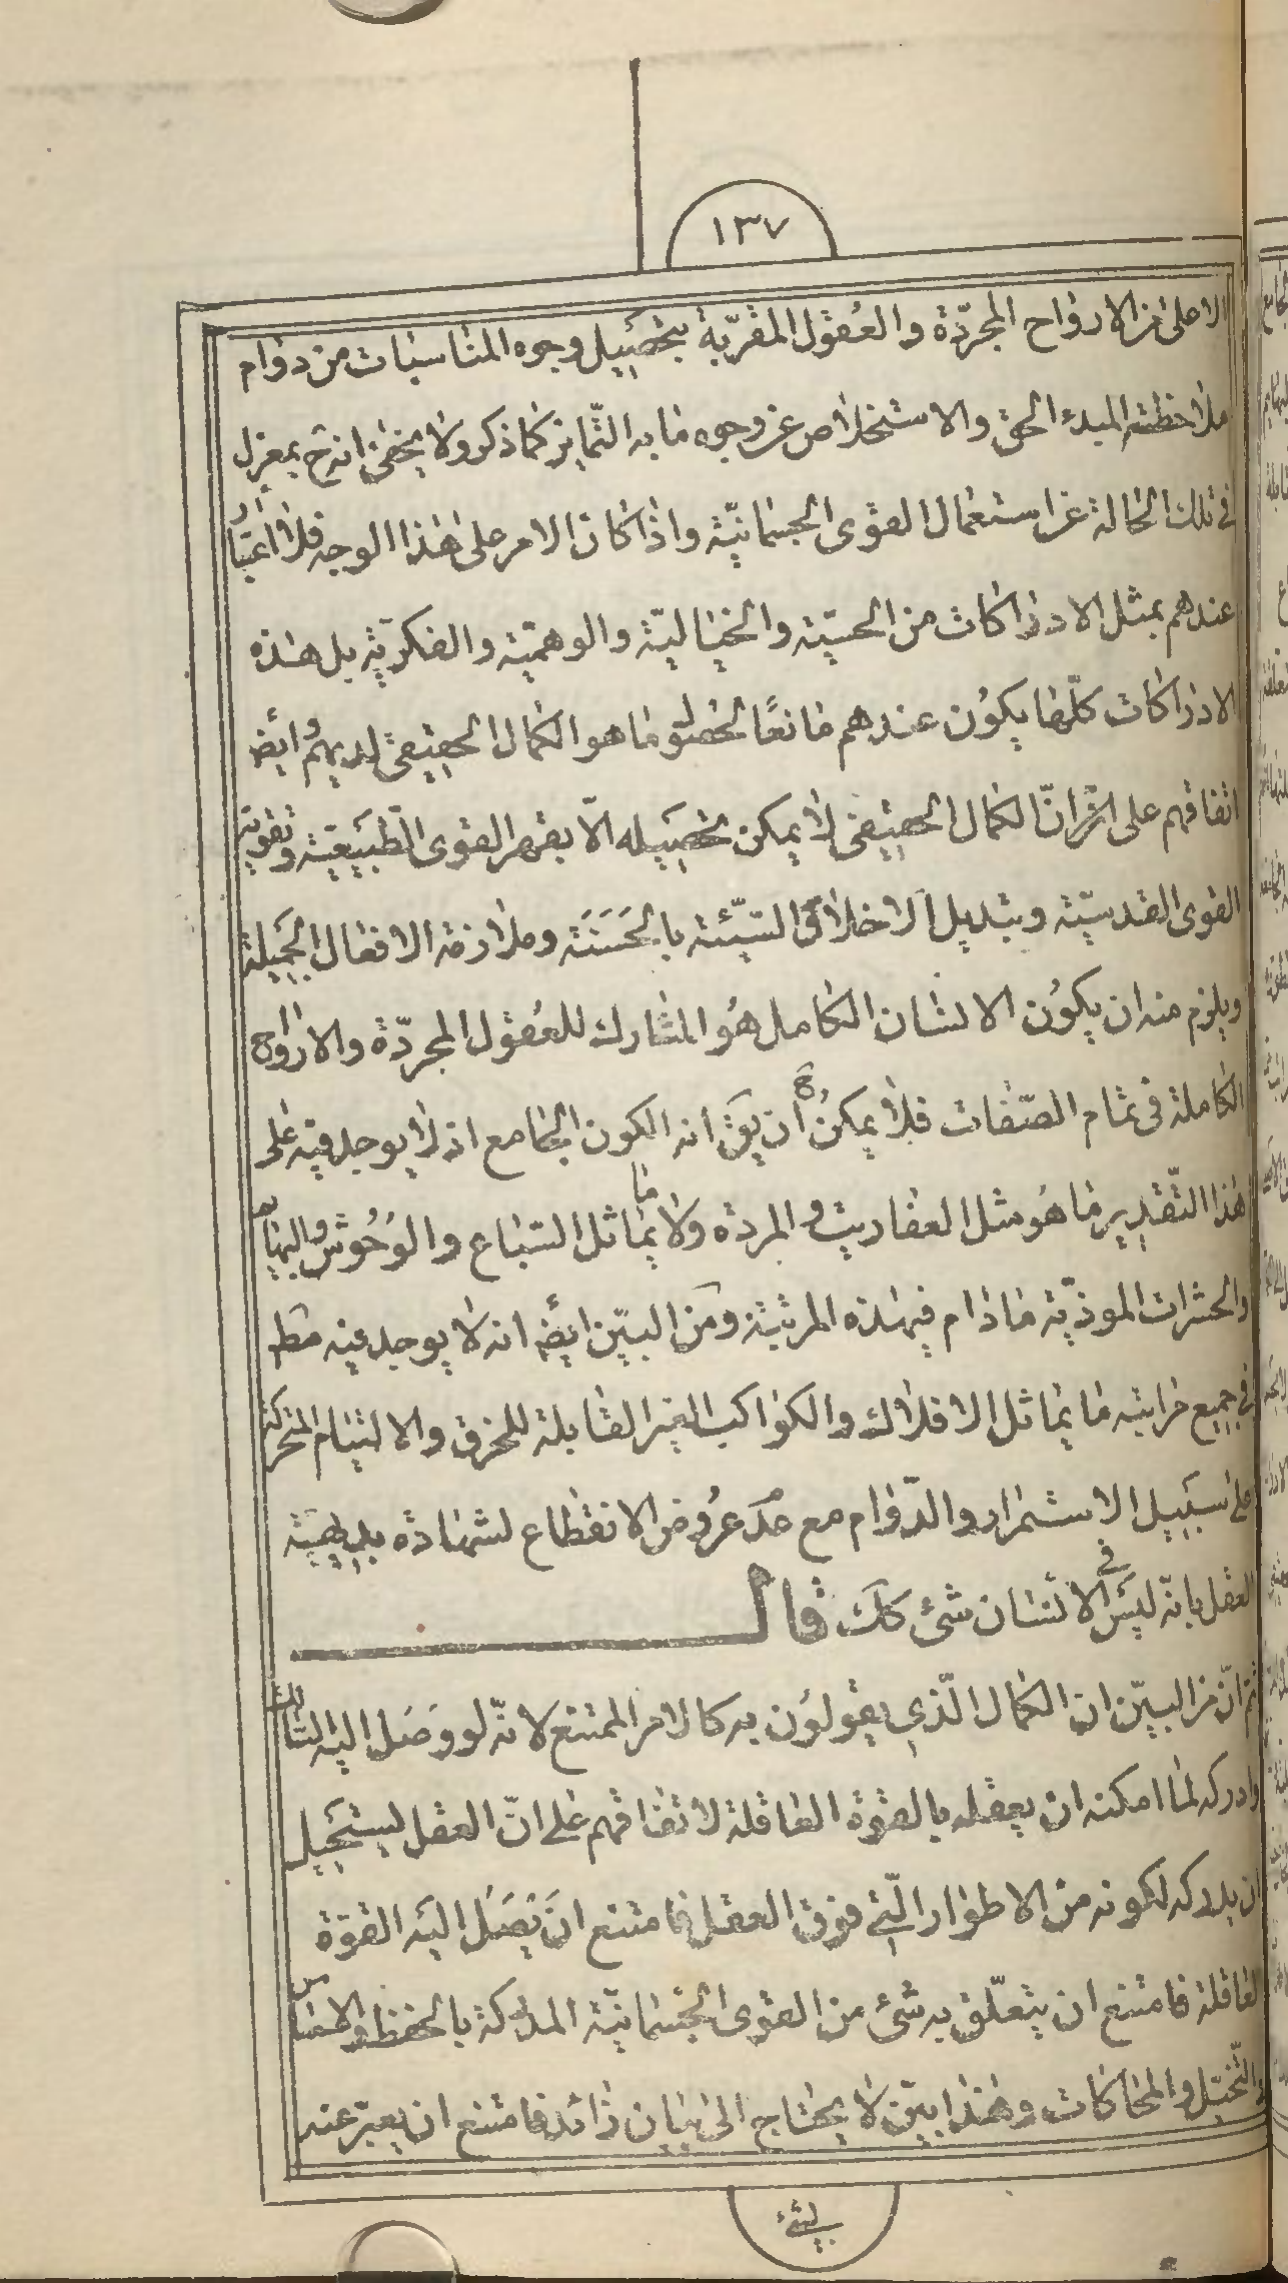 ١٣٧
الاعلى من الارواح المجرّدة والعُقول المقرّبة بتحصيل وجوه المناسبات من دوام
ملاحظة المبدء الحق والاستخلاص عن وجوه ما به التّمايز كما ذكر ولا يخفى انه ح بمعزل
فى تلك الحالة عن استعمال القوى الجسمانيّة واذا كان الامر على هذا الوجه فلا اعتبار
عندهم بمثل الادراكات من الحسيّة والخياليّة والوهميّة والفكريّة بل هذه
الادراكات كلّها يكوُن عندهم مانعًا لحصول ما هو الكمال الحقيقى لديهم وايضا
اتفاقهم على انّ الكمال الحقيقى لا يمكن تحصيله الّا بقهر القوى الطّبيعيّة وتقوية
القوى القدسيّة وبتديل الاخلاق السّيّئة بالحَسَنَة وملازمة الافعال الجَميلة
ويلزم منه ان يكوُن الانسان الكامل هُو المشارك للعُقول المجرّدة والارواح
الكاملة فى تمام الصّفات فلا يمكنُ ح أن يقَ انه الكون الجامع اذ لا يوجد فيه على
هذا التّقدير ما هُو مثل العفاريت والمردة ولا ما يماثل السّباع والوُحُوش والبهائم
والحشرات الموذيّة ما دام فى هذه المرتبة ومن البيّن ايضا انه لا يوجد فيه مط
فى جميع مراتبه ما يماثل الافلاك والكواكب الغير القابلة للخرق والالتيام المتحركة
على سَبيل الاستمرار والدّوام مع عدم عرُوض الانقطاع لشهادة بديهيّة
العقل بانّه ليسَ فى الانسان شئ كك قال
ثم انّ من البيّن ان الكمال الّذي يقولوُن به كالامر الممتنع لانّه لو وصَل اليه السّالك
وادركه لما امكنه ان يعقله بالقوّة العاقلة لاتفاقهم على انّ العقل ليستحيل
ان يدركه لكونه من الاطوار الّتى فوق العقل فامتنع ان يَصَل اليَه القوّة
العاقلة فامتنع ان يتعلّق به شئ من القوى الجسمانيّة المدركة بالحفظ والا
والتّخيّل والمحاكات وهذا بيّن لا يحتاج الى بيان زائد فامتنع ان يعبّر عنه
بشئ